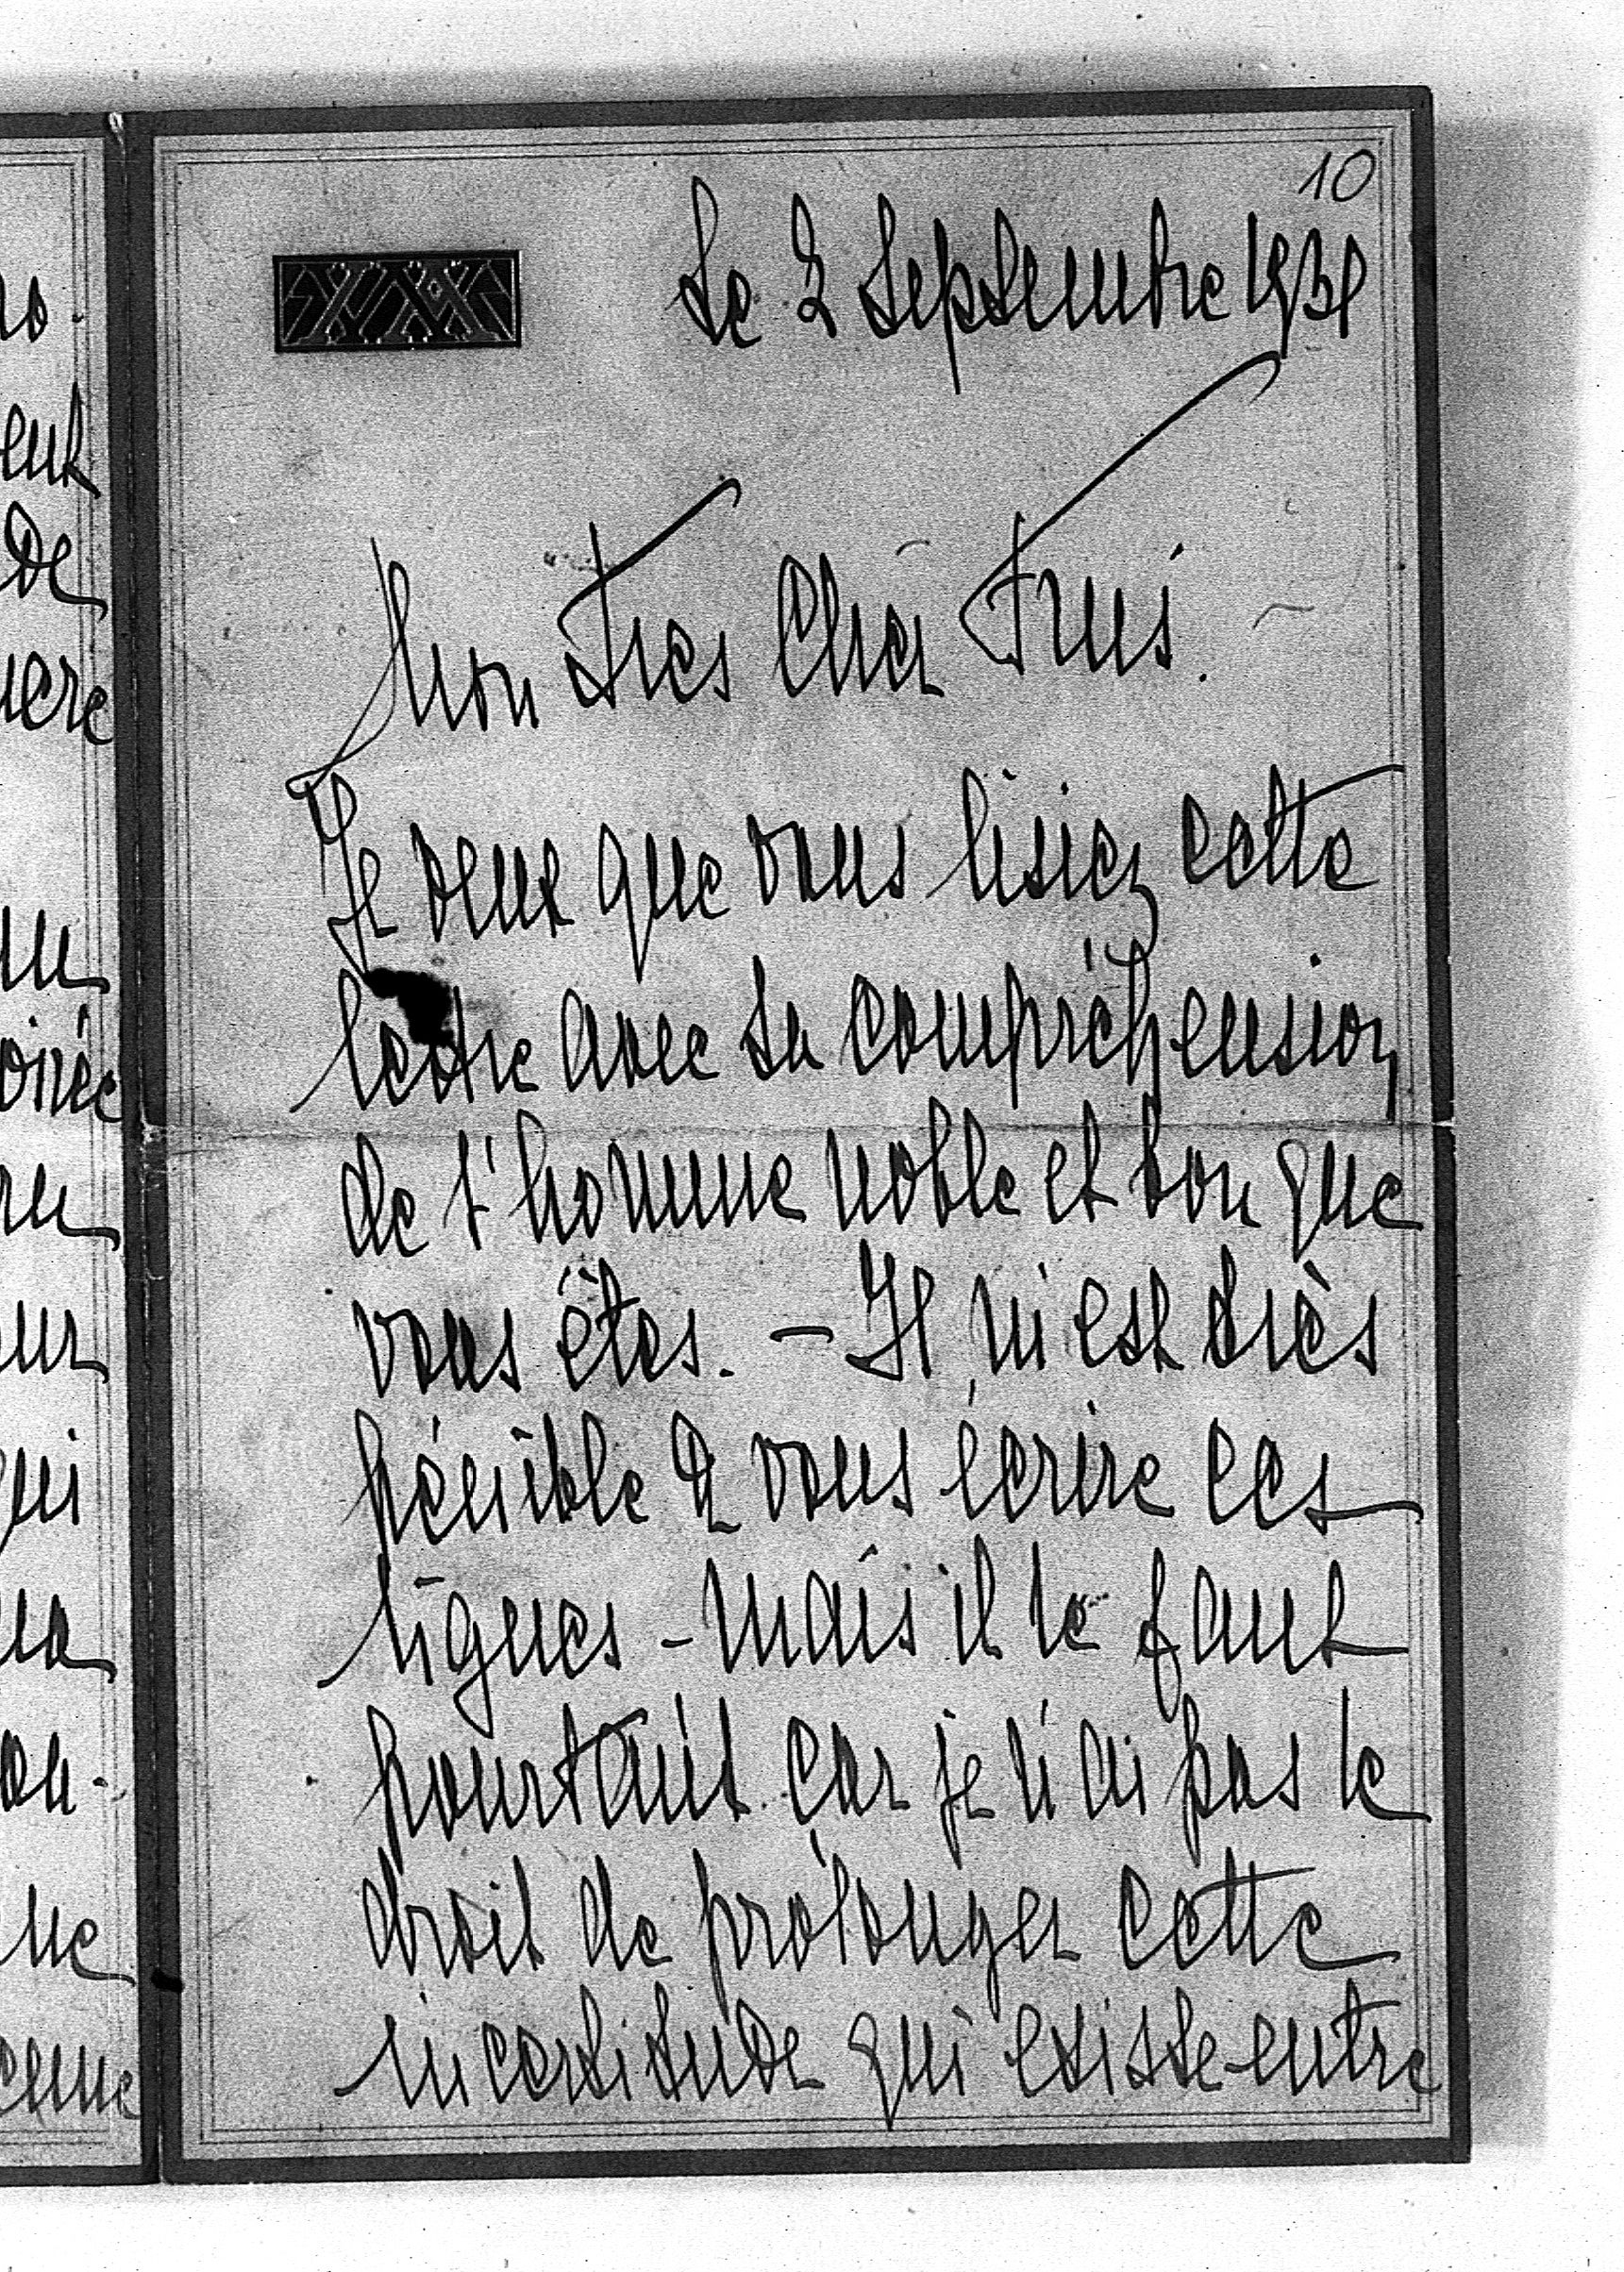 10
Le 2 Septembre 1931
Mon Très Cher
Je veux que vous lisiez cette
lettre avec la compréhension
de l'homme noble et bon que
vous êtes. - Il m'est très
pénible de vous écrire ces
lignes - mais il le faut
pourtant car je n'ai pas le
droit de prolonger cette
incertitude qui existe entre